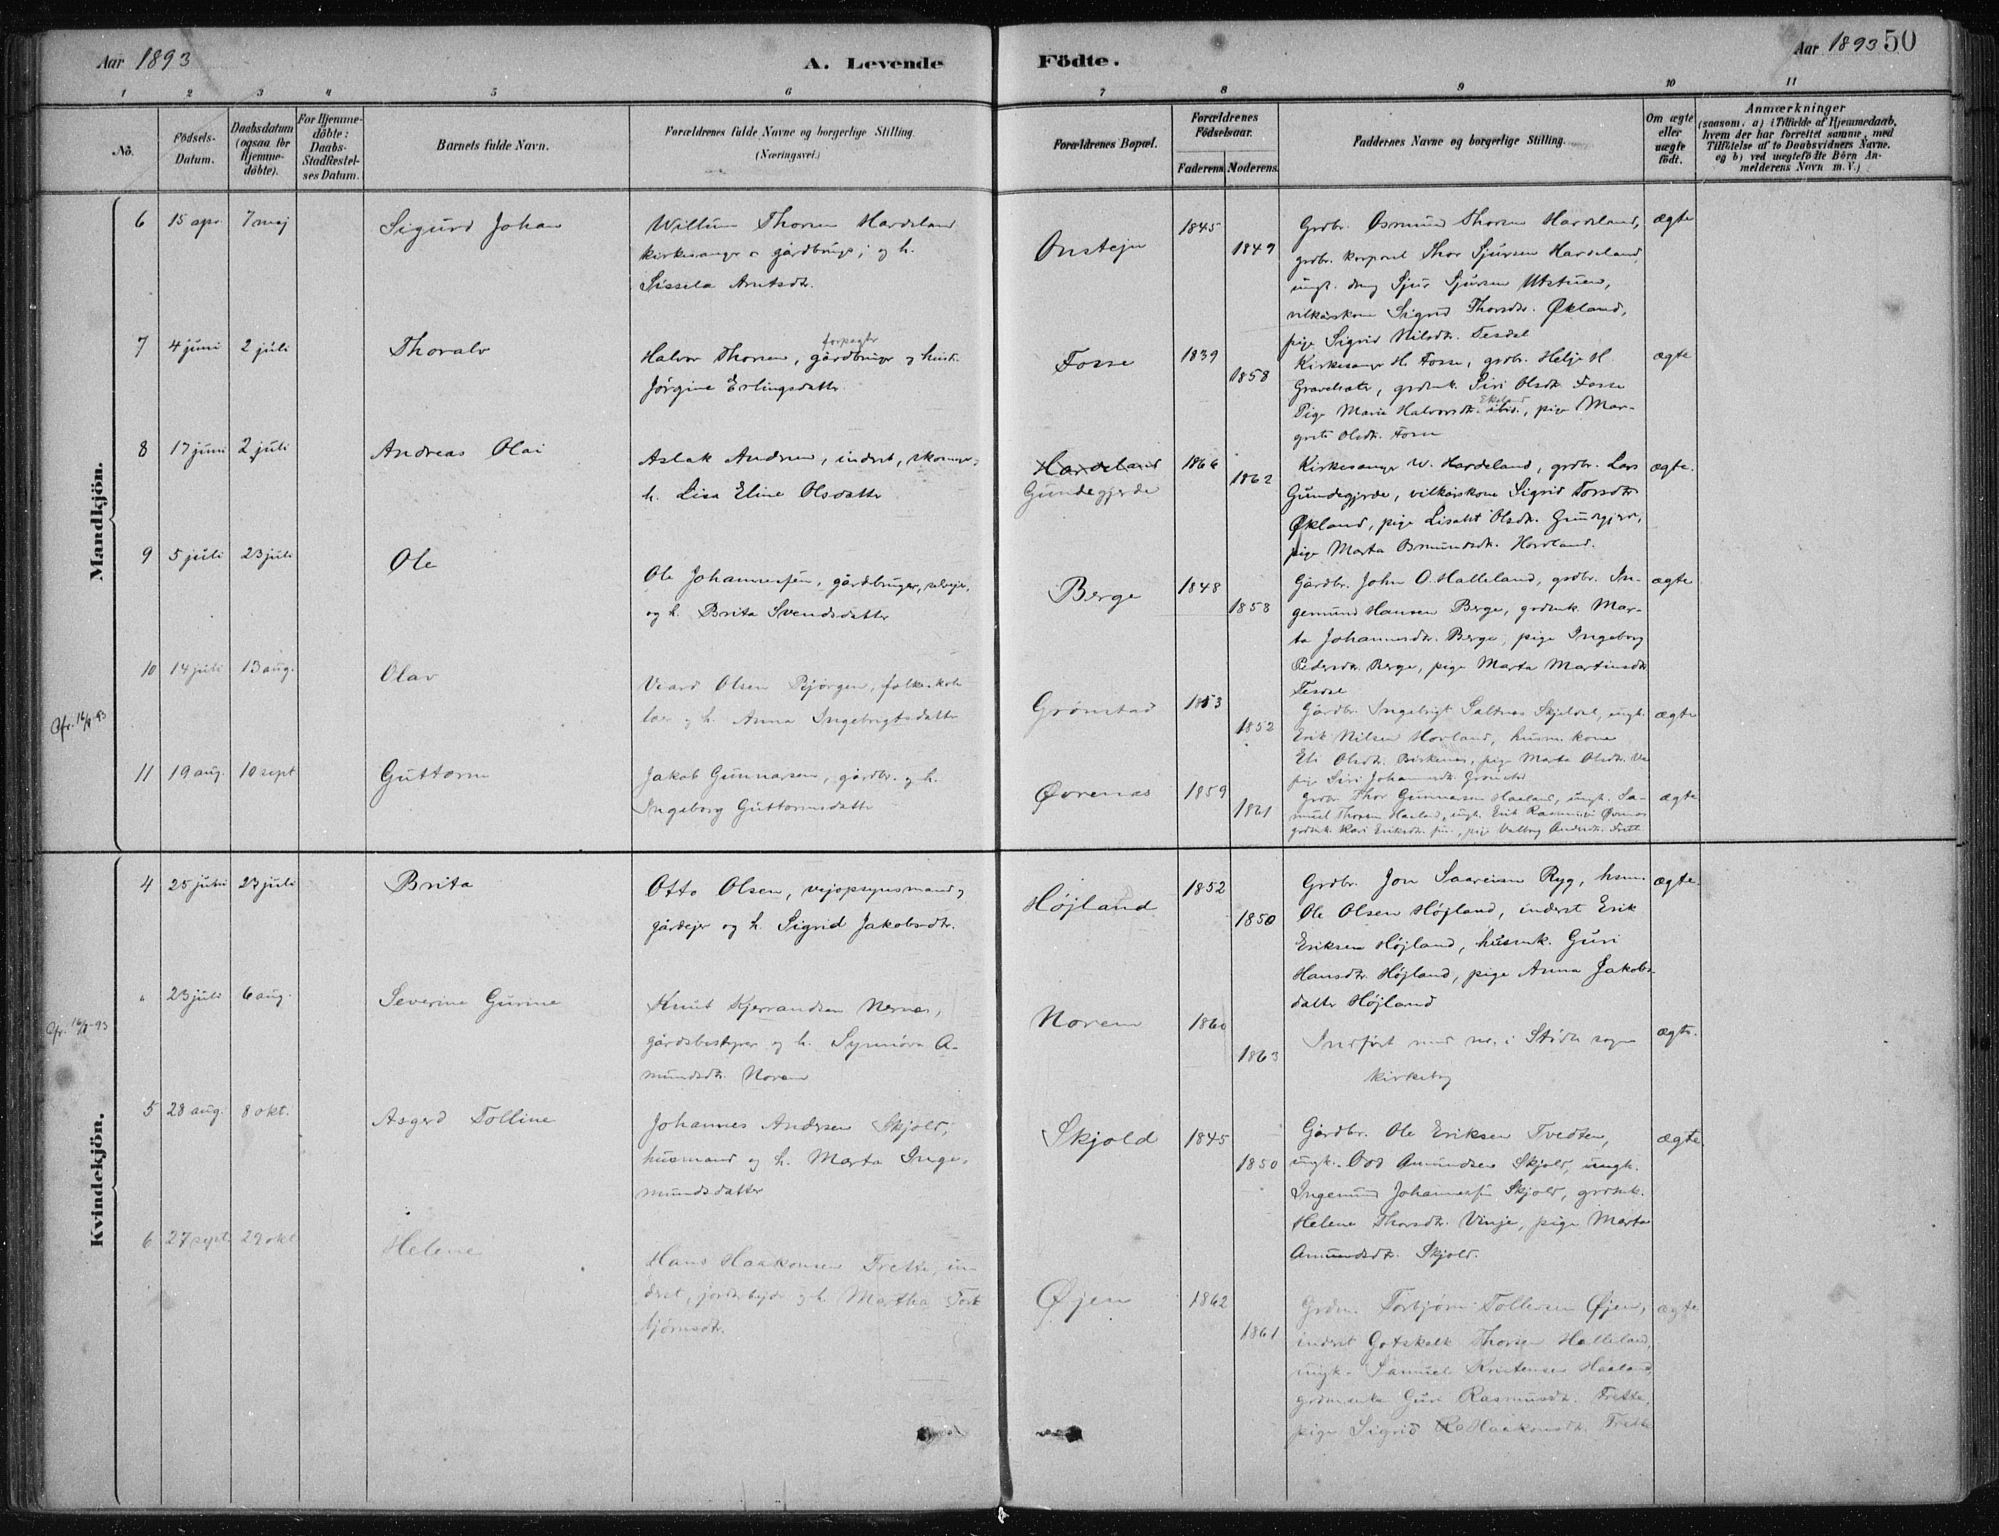 Aar 1893
A. Levende
Födte.
Aar 1893 50
1 2 3 4 5 6 7 8 9 10 11
No.
Födsels-
Datum.
Daabsdatum
(ogsaa for
Hjemme-
döbte).
For Hjemme-
döbte:
Daabs-
Stadfæstel-
ses Datum.
Barnets fulde Navn.
Forældrenes fulde Navne og borgerlige Stilling.
(Næringsvei.)
Forældrenes Bopæl.
Forældrenes
Födselsaar.
Faderens Moderens.
Faddernes Navne og borgerlige Stilling.
Om ægte
eller
uægte
födt.
Anmærkninger
(saasom. a) i Tilfælde af Hjemmedaab,
hvem der har forrettet samme, med
Tilföielse af to Daabsvidners Navne.
og b) ved uægtefödte Börn An-
melderens Navn m.V.)
Mandkjön.
6 15 apr. 7 maj
Sigurd Johan
Willum Thorsen Hardeland
kirkesanger o gårdbruger; og h.
Sissela Arntsdtr.
Onstejn
1845
1849
Grdbr. Osmund Thorsen Hardeland,
grdbr. korporal Thor Sjursen Hardeland,
ungk. dreng Sjur Sjursen Utstuen,
vilkårskone Sigrid Thorsdtr. Økland,
pige Sigrid Nilsdtr. Tesdal
ægte
7 4 juni 2 juli
Thoralv
forpagter
Halvor Thorsen, gårdbruger og hust.
Jørgine Erlingsdatter
Fosse
1839
1858
Kirkesanger H. Fosse, grdbr. Helje H.
Gravelsæter, grdmk. Siri Olsdtr. Fosse
Ekeland
Pige Marie Halvorsdtr. ibid., pige Mar-
grete Olsdtr. Fosse
ægte
8 17 juni 2 juli
Andreas Olai
Aslak Andersen, inderst, skomager,
h. Lisa Eline Olsdatter
Hardeland
Gundegjerde
1866
1862
Kirkesanger W. Hardeland, grdbr. Lars
Gundegjerde, vilkårskone Sigrid Torsdtr
Økland, pige Lisabet Olsdtr. Gundgjerde,
pige Marta Osmundsdtr. Hovland.
ægte.
9 5 juli 23 juli
Ole
Ole Johannessen, gårdbruger, selvejer,
og h. Brita Svendsdatter
Berge
1848
1858
Gårdbr. John O. Halleland, grdbr. In-
gemund Hansen Berge, grdmk. Mar-
ta Johannesdtr. Berge, pige Ingeborg
Pedersdtr. Berge, pige Marta Martinsdtr
Tesdal
ægte
Cfr. 16/9-93
10 14 juli 13 aug.
Olav
Vrard Olsen Bjørgen, folkeskole
lær og h. Anna Ingebrigtsdatter
Grønstad
1853
1852
Gårdbr. Ingebrigt Saltnes Skjeldal, ungk.
Erik Nilsen Hovland, husm. kone
Eli Olsdtr. Birkenes, pige Marta Olsdtr.
pige Siri Johannesdtr. Grønstad
ægte
11 19 aug. 10 sept
Guttorm
Jakob Gunnarsen, gårdbr. og h.
Ingeborg Guttormsdatter
Øvrenes
1859
1861
grdbr. Thor Gunnarsen Haaland, ungk. Sa-
muel Thorsen Haaland, ungk. Erik Rasmussen Øvrenes
grdmk. Kari Eriksdtr. , pige Valborg Andersdtr. Frette
ægte
Kvindekjön.
4 25 juni 23 juli
Brita
Otto Olsen, vejopsynsmand og
gårdejer og h. Sigrid Jakobsdtr.
Højland
1852
1850
Grdbr. Jon Saaveisen Ryg, hsm.
Ole Olsen Højland, inderst Erik
Eriksen Højland, husmk. Guri
Hansdtr. Højland, pige Anna Jakobs-
datter Højland
ægte.
Cfr. 16/9-93
" 23 juli 6 aug.
Severine Gurine
Knut Kjerrandsen Nernes,
gårdsbestyrer og h. Synnøva A-
mundsdtr. Norem
Norem
1860
1863
Indført med nr. i Stødle sogns
kirkebog
ægte.
5 28 aug. 8 okt.
Asgerd Tolline
Johannes Andersen Skjold,
husmand og h. Marta Inge-
mundsdatter
Skjold
1845
1850
Gårdbr. Ole Eriksen Tvedten,
ungk. Odd Amundsen Skjold, ungk.
Ingemund Johannessen Skjold, grdmk.
Helene Thorsdtr. Vinje, pige Marta
Amundsdtr. Skjold.
ægte
6 27 sept. 29 okt
Helene
Hans Haakonsen Frette, in-
derst, jordarbejder og h. Martha Tor-
bjørnsdtr.
Øjen
1862
1861
Grdm. Torbjørn Tollefsen Øjen,
inderst Gotskalk Thorsen Halleland,
ungk. Samuel Kristensen Haaland,
grdmannske Guri Rasmusdtr. Frette,
pige Sigrid Haakonsdtr. Frette
ægte